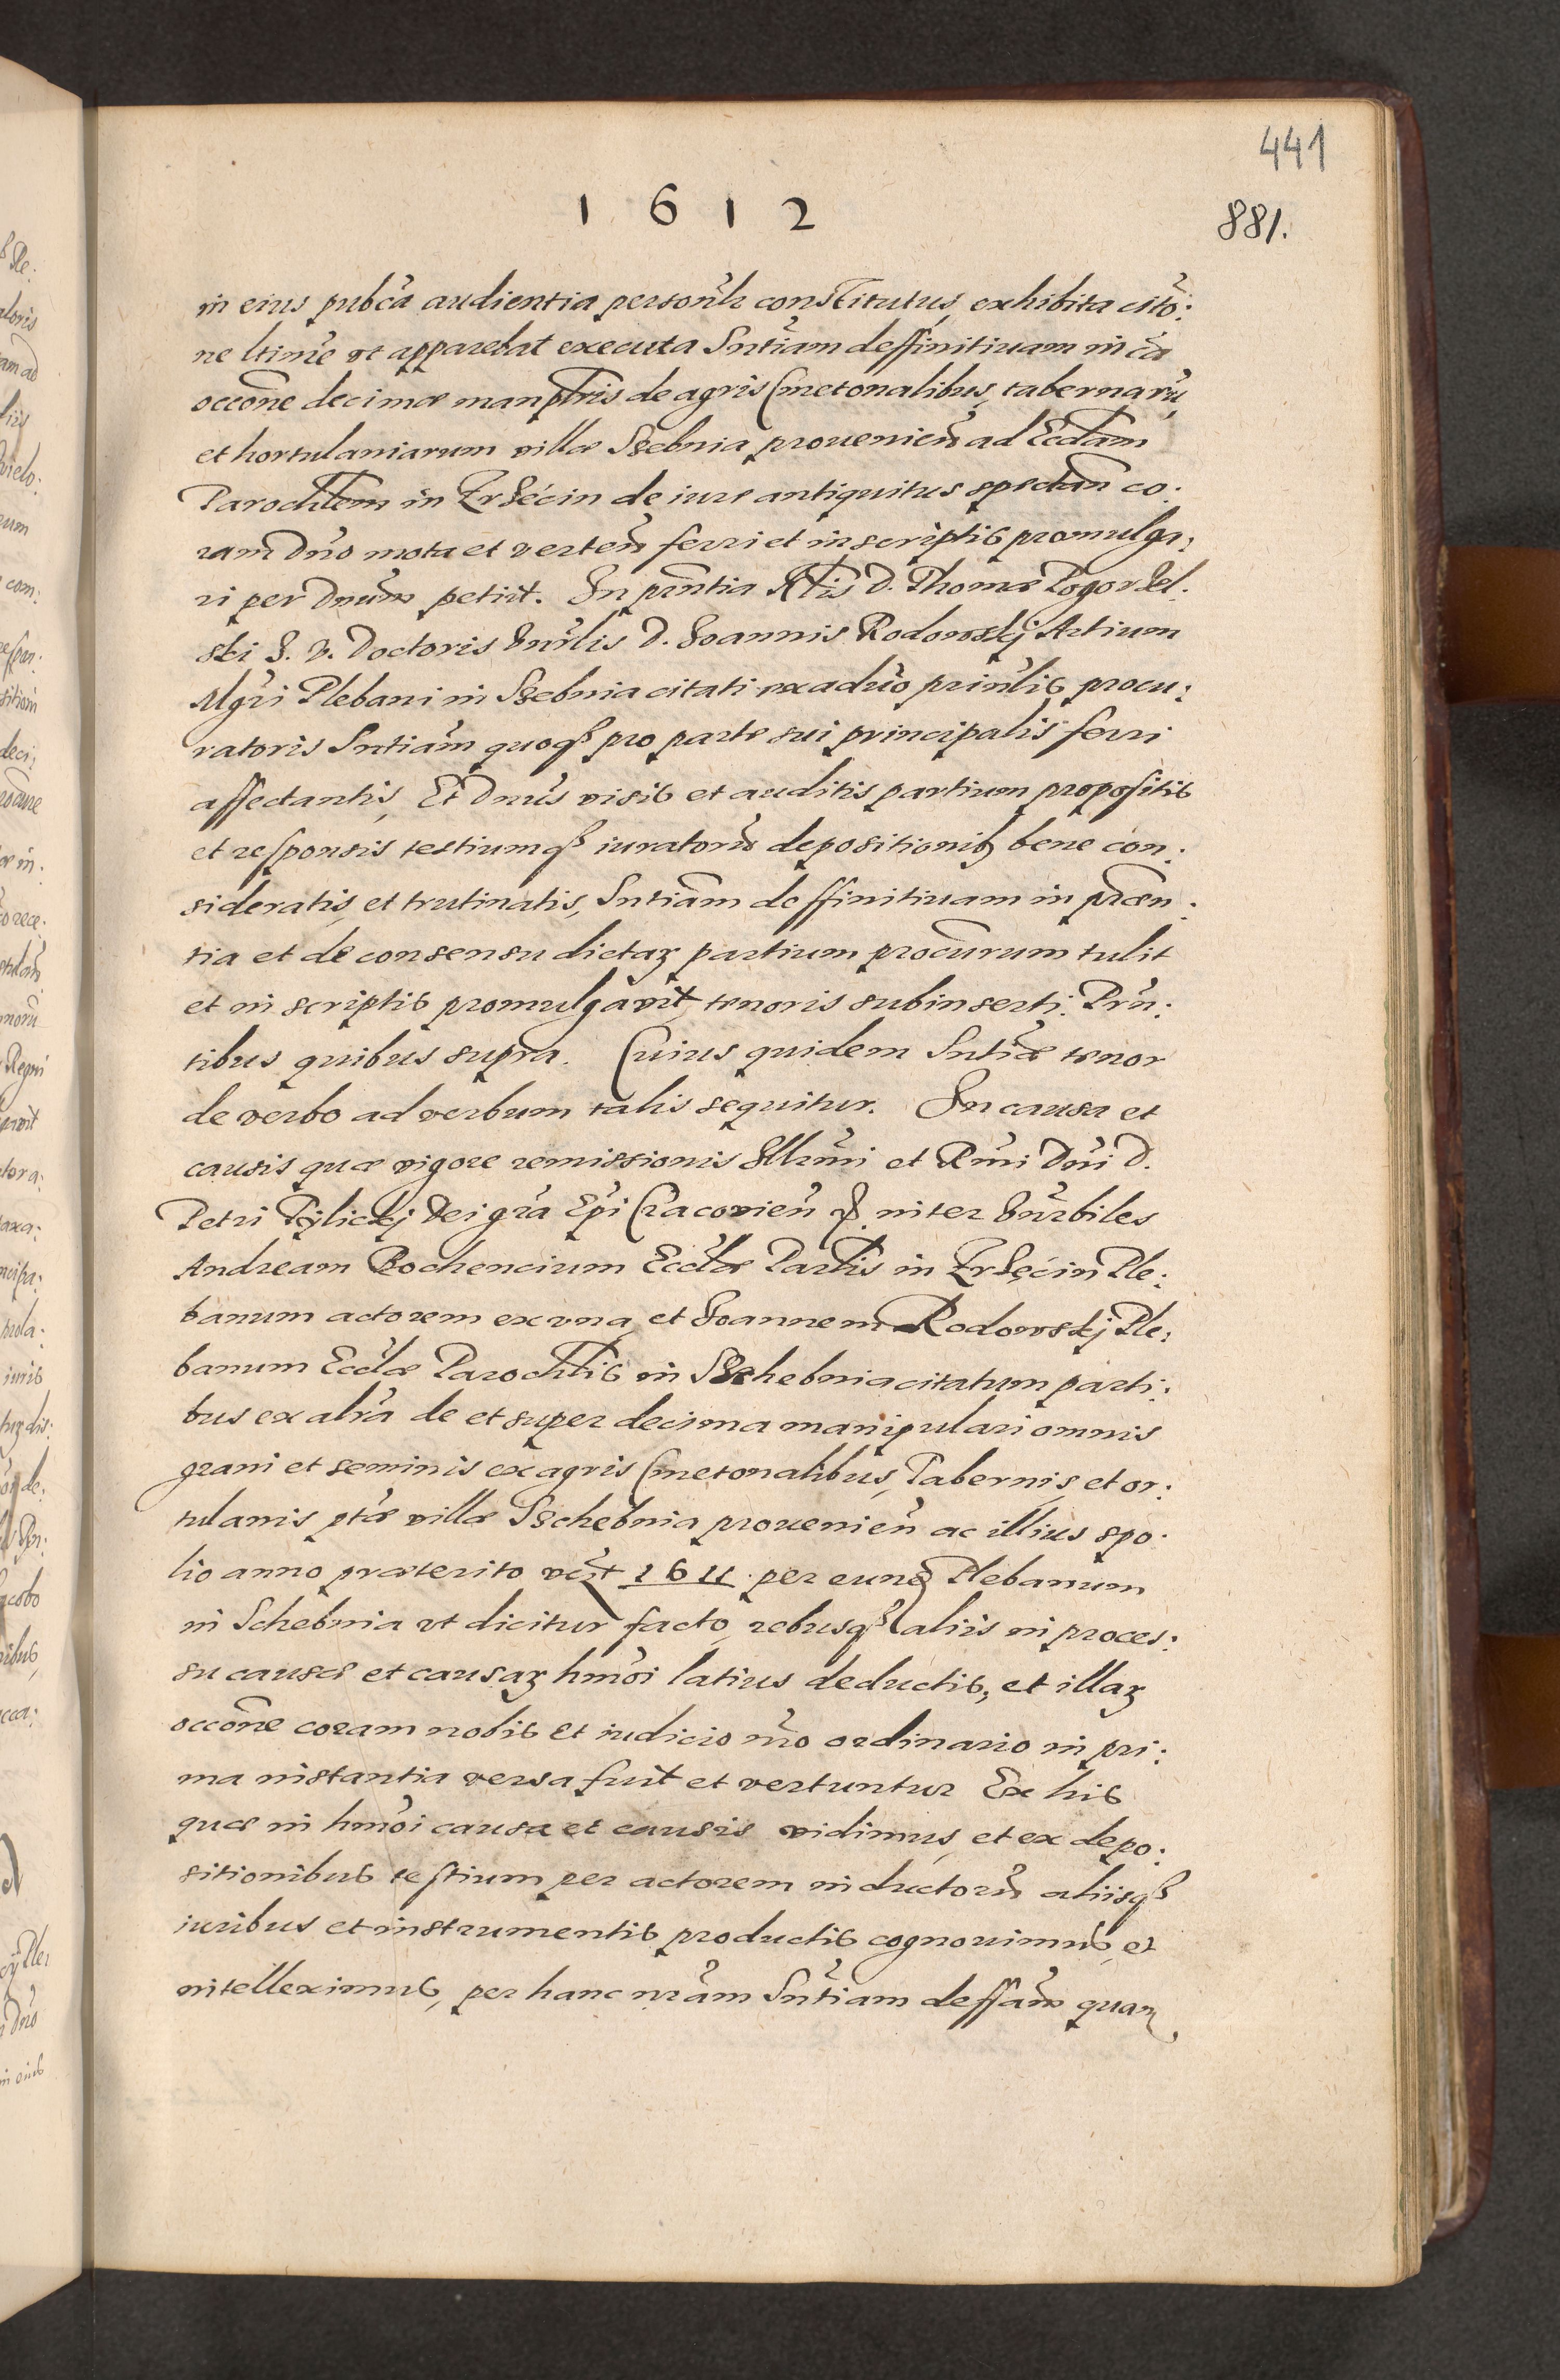 441
1612
881.
in eius pubca audientia personlr constitutus, exhibita citõ:
ne ltime vt apparebat executa Sntiam deffinitiuam in cã
occõne decimæ manplris de agris Cmetonalibus, tabernarũ,
et hortulaniarum villæ Szebnia prouenień ad Eccłam
Parochłem in Trzécin de iure antiquitus spectań co:
ram Dno mota et verteń ferri et in scriptis promulga:
ri per Dnum petiit. In pñtia Atis D. Thomæ Pogorzel:
ski I. V. Doctoris Vnrlis D. Ioannis Rodowskj Artium
Mgri Plebani in Szebnia citati ex aduo prinlis procu:
ratoris Sntiam quoq3 pro parte sui principalis ferri
affectantis, Et Dnus visis et auditis partium propositis
et responsis testiumq3 iuratorũ depositionib9 bene con:
sideratis, et trutinatis, Sntiam deffinitiuam in præn:
tia et de consensu dictaꝝ partium procurum tulit
et in scriptis promulgauit tenoris subinserti. Prñ:
tibus quibus supra. Cuius quidem Sntiæ tenor
de verbo ad verbum talis sequitur. In causa et
causis quæ vigore remissionis Illrmi et Rmi Dni D.
Petri Tÿlickj Dei gra Epi Cracouień &. inter Vnrbiles
Andream Bochencium Eccłæ Parłis in Trzęcin Ple:
banum actorem ex vna, et Ioannem Rodowskj Ple:
banum Eccłæ Parochłis in Szchebnia citatum parti:
bus ex altra de et super decima manipulari omnis
grani et seminis ex agris Cmetonalibus, Tabernis, et or:
tulanis ptæ villæ Szchebnia prouenień ac illius spo:
lio anno præterito vczt 1611. per eund Plebanum
in Schebnia vt dicitur facto, rebusq3 aliis in proces:
su causæ et causaꝝ hmoi latius deductis, et illaꝝ
occõne coram nobis et iudicio nro ordinario in pri:
ma instantia versa fuit et vertuntur Ex his
quæ in hmoi causa et causis vidimus, et ex depo:
sitionibus testium per actorem inductorũ aliisq3
iuribus et instrumentis productis cognouimus, et
intelleximus, per hanc nram Sntiam deffam quam